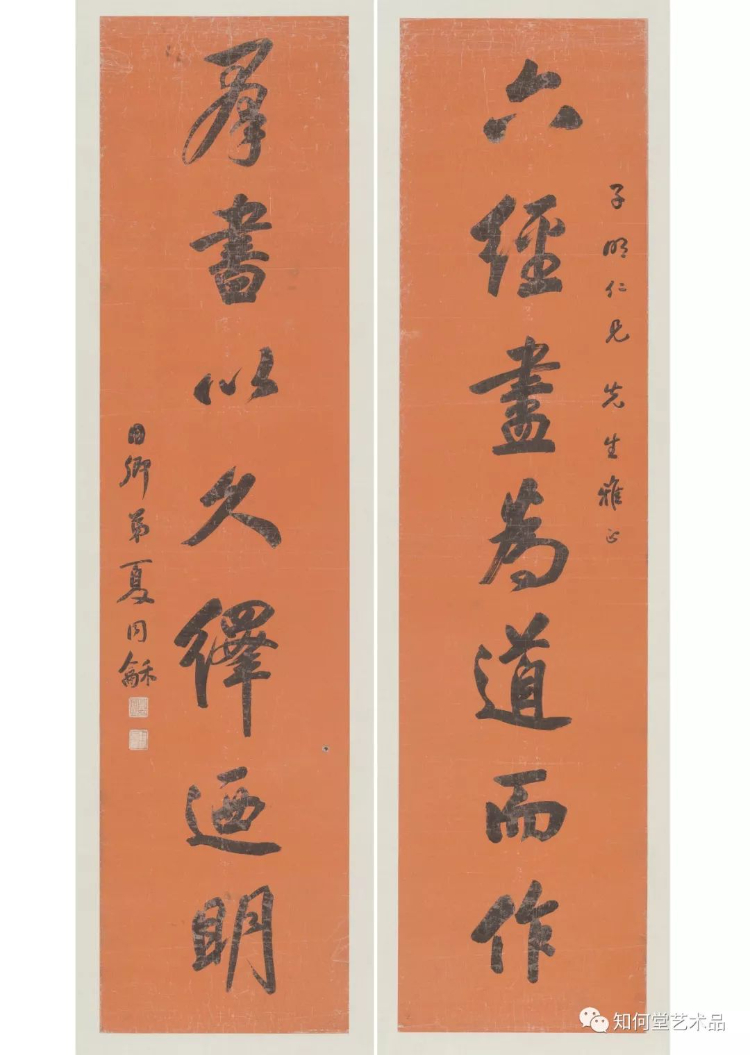 子明仁兄先生雅正
六經盡為道而作
羣書以久繹迺明
用卿弟夏同龢
知何堂艺术品